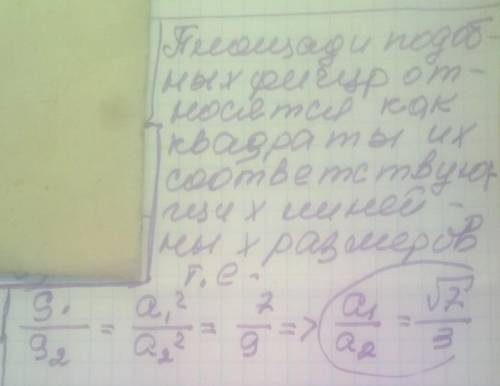 Площади подоб-
ных фигур от-
носятся как
квадраты их
соответствую-
щих линей-
ных размеров
т.е.
S₁/S₂ = a₁²/a₂² = 7/9 => a₁/a₂ = √7/3